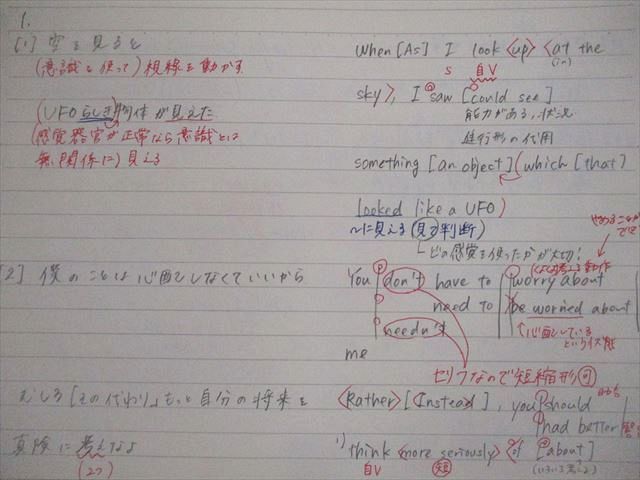 1.
[1] 空を見ると
When [As] I look <up> <at the
(意識を使って) 視線を動かす
(in)
s 自V
sky>, I saw [could see]
(UFOらしき) 物体が見えた
能力がある、状況
(感覚器官が正常なら意識とは
進行形の代用
無関係に) 見える
something [an object] (which [that]
looked like a UFO)
〜に見える (見て判断)
どの感覚を使ったかが大切!
[2] 僕のことは心配しなくていいから
You don't have to worry about
need to be worried about
needn't
心配している
という状態
me
セリフなので短縮形可
むしろ [その代わり] もっと自分の将来を
<Rather> [Instead], you should
had better
真険に考えなよ
think <more seriously> <of [about]
(2つ)
自V 短